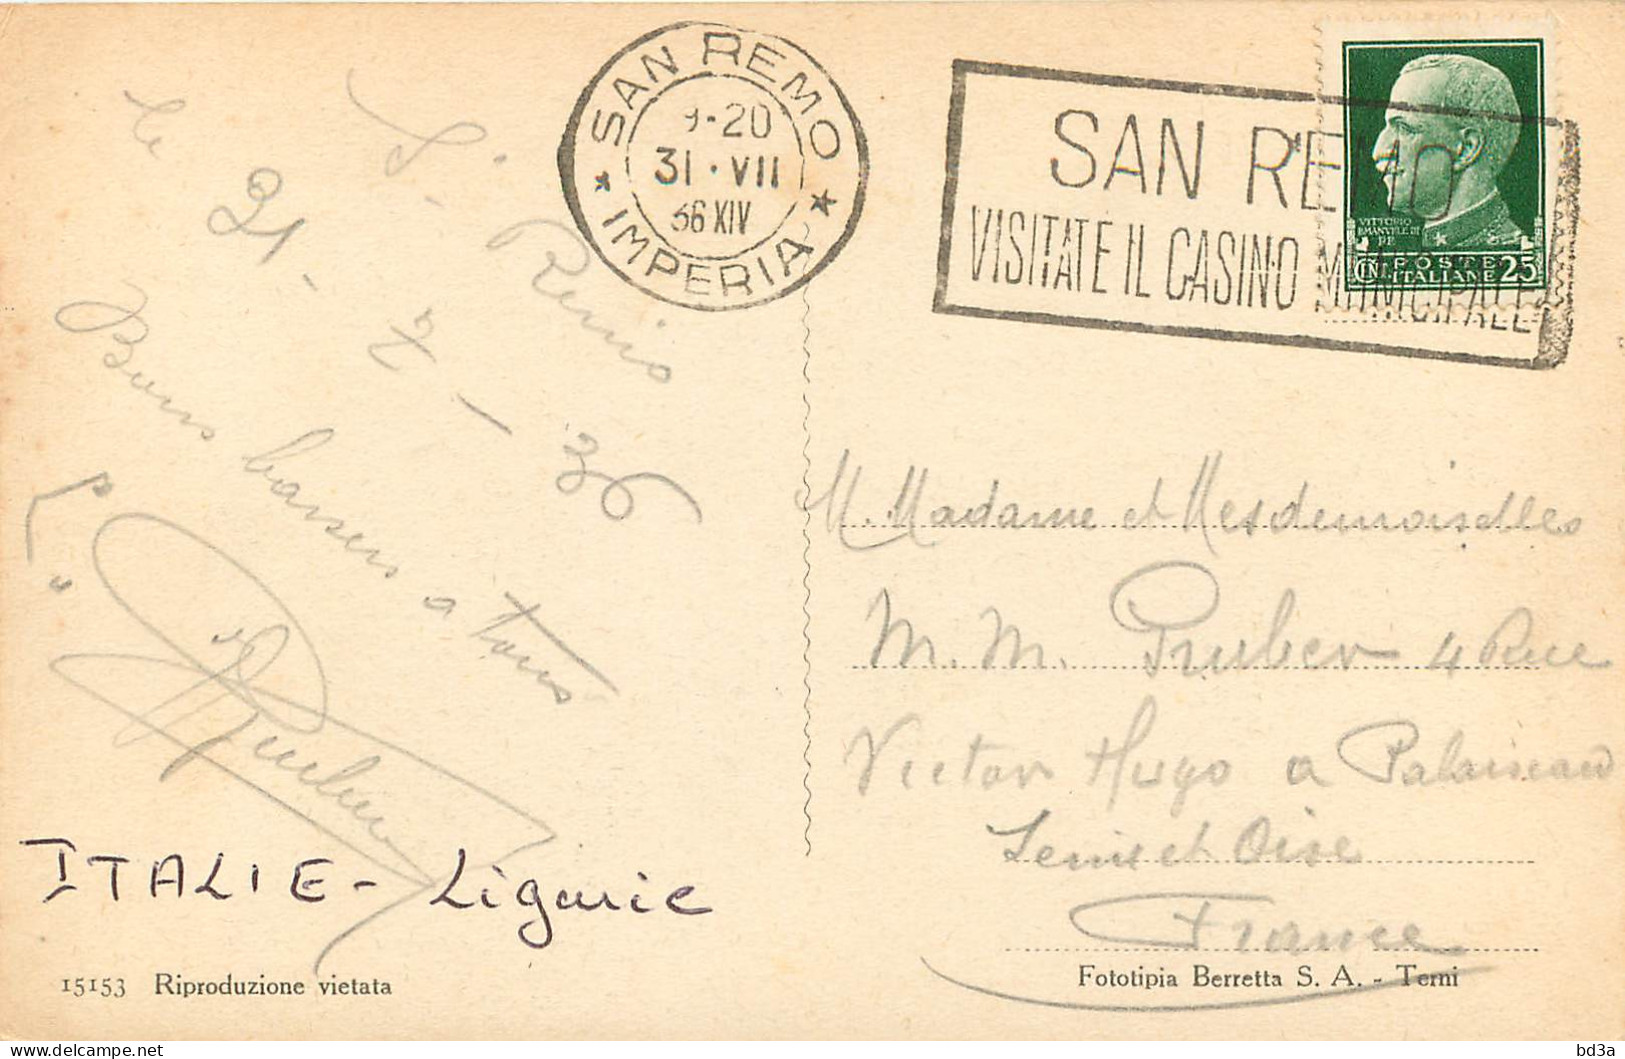 SAN REMO
9-20
31·VII
36 XIV
IMPERIA
SAN REMO
VISITATE IL CASINO MUNICIPALE
VITTORIO
EMANVELE III
RE
POSTE
ITALIANE
CENT 25
S. Remo
le 31 - 7 - 36
Bons baisers a tous
M. Madame et Mesdemoiselles
M. M. Gruber 4 Rue
Victor Hugo a Palaiseau
Seine et Oise
France
ITALIE - Ligurie
15153 Riproduzione vietata
Fototipia Berretta S. A. - Terni
bd3a